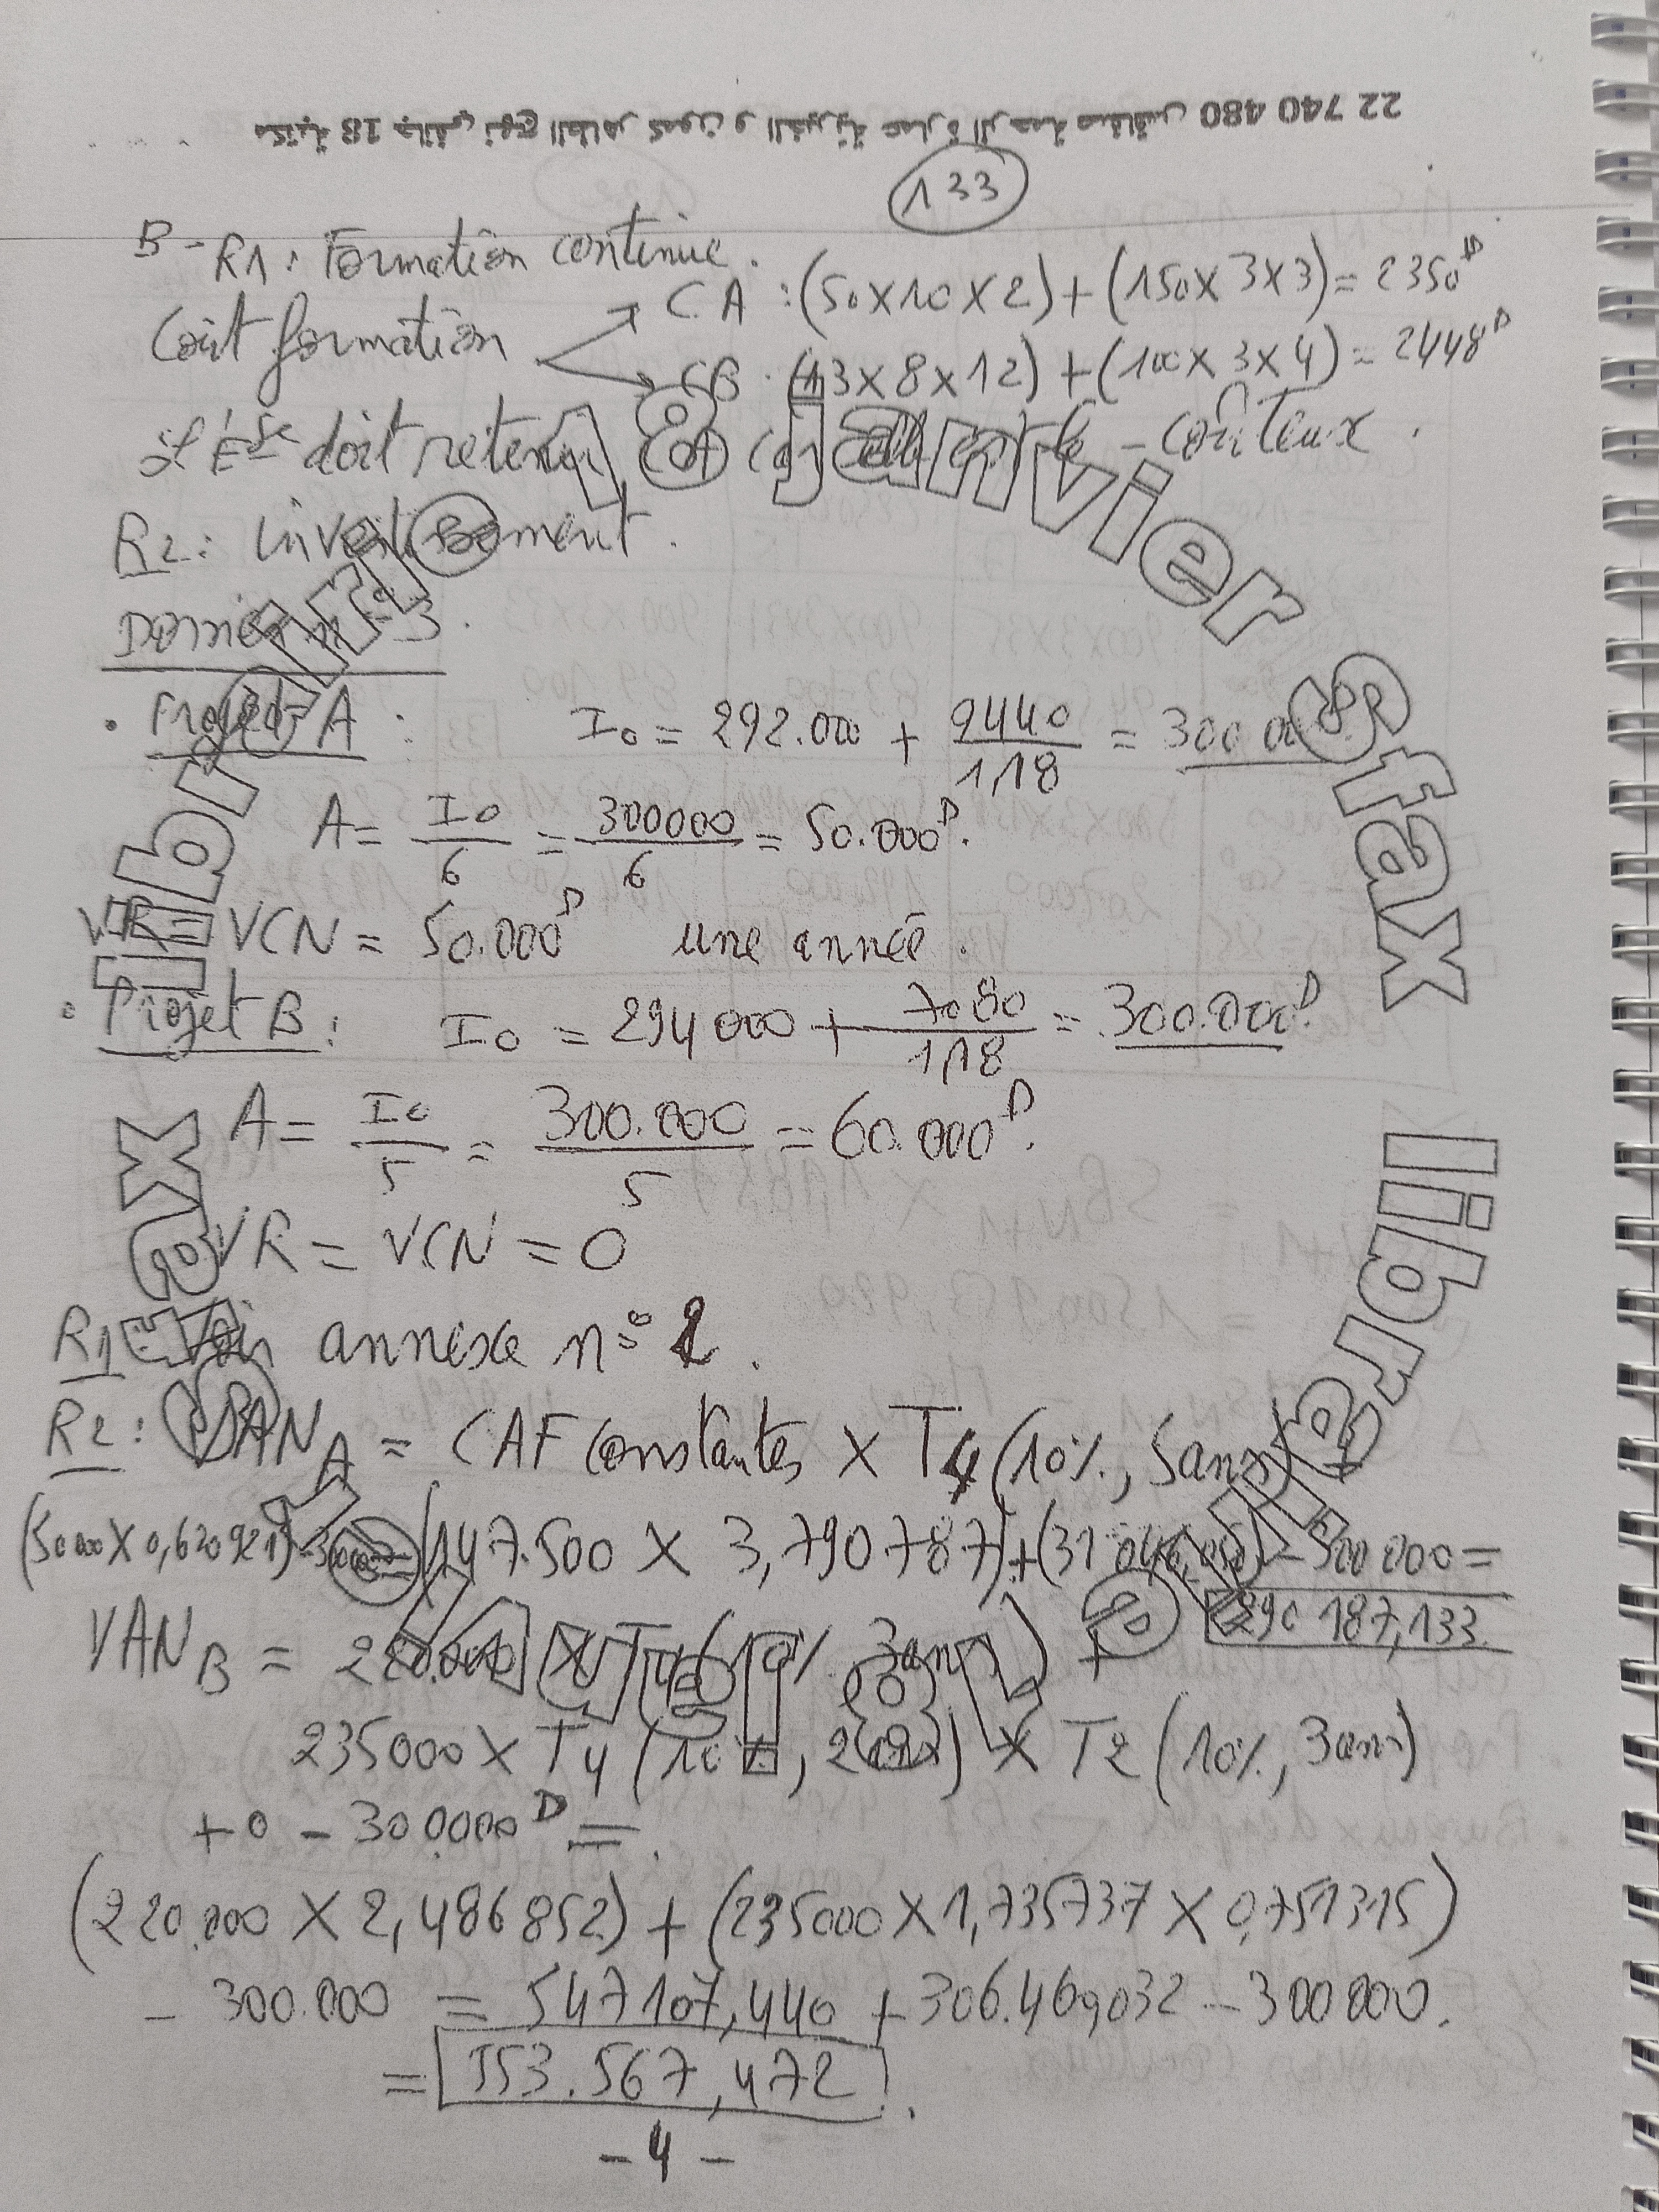 مكتبة 18 جانفي نهج الطاهر كمون و الخيرية عمارة الرحمة صفاقس 480 740 22
133
B - R1 : Formation continue .
Coût formation
CA : (50 x 10 x 2) + (150 x 3 x 3) = 2350 D
CB : (13 x 8 x 12) + (100 x 3 x 4) = 2448 D
L'Ese doit retenir CA car coûteux .
R2 : Investissement .
3 .
• Projet A : I0 = 292.000 + 9440/1,18 = 300 000
A = I0/6 = 300000/6 = 50.000 D .
VR = VCN = 50.000 D une année .
• Projet B : I0 = 294 000 + 7080/1,18 = 300.000 D .
A = I0/5 = 300.000/5 = 60.000 D .
VR = VCN = 0
R1 : Voir annexe n° 2 .
R2 : VAN A = CAF constantes x T4 (10%, 5 ans) +
(50 000 x 0,620921) - 300000 = (147.500 x 3,790787) + (31 046,050) - 300 000 =
290 187,133
VAN B = 220.000 x T4 (10%, 3 ans) +
235000 x T4 (10%, 2 ans) x T2 (10%, 3 ans)
+ 0 - 300.000 D =
(220.000 x 2,486852) + (235000 x 1,735737 x 0,751315)
- 300.000 = 547107,440 + 306.460,032 - 300 000 .
= 553.567,472 .
- 4 -
librairie 18 janvier Sfax
librairie 18 janvier Sfax